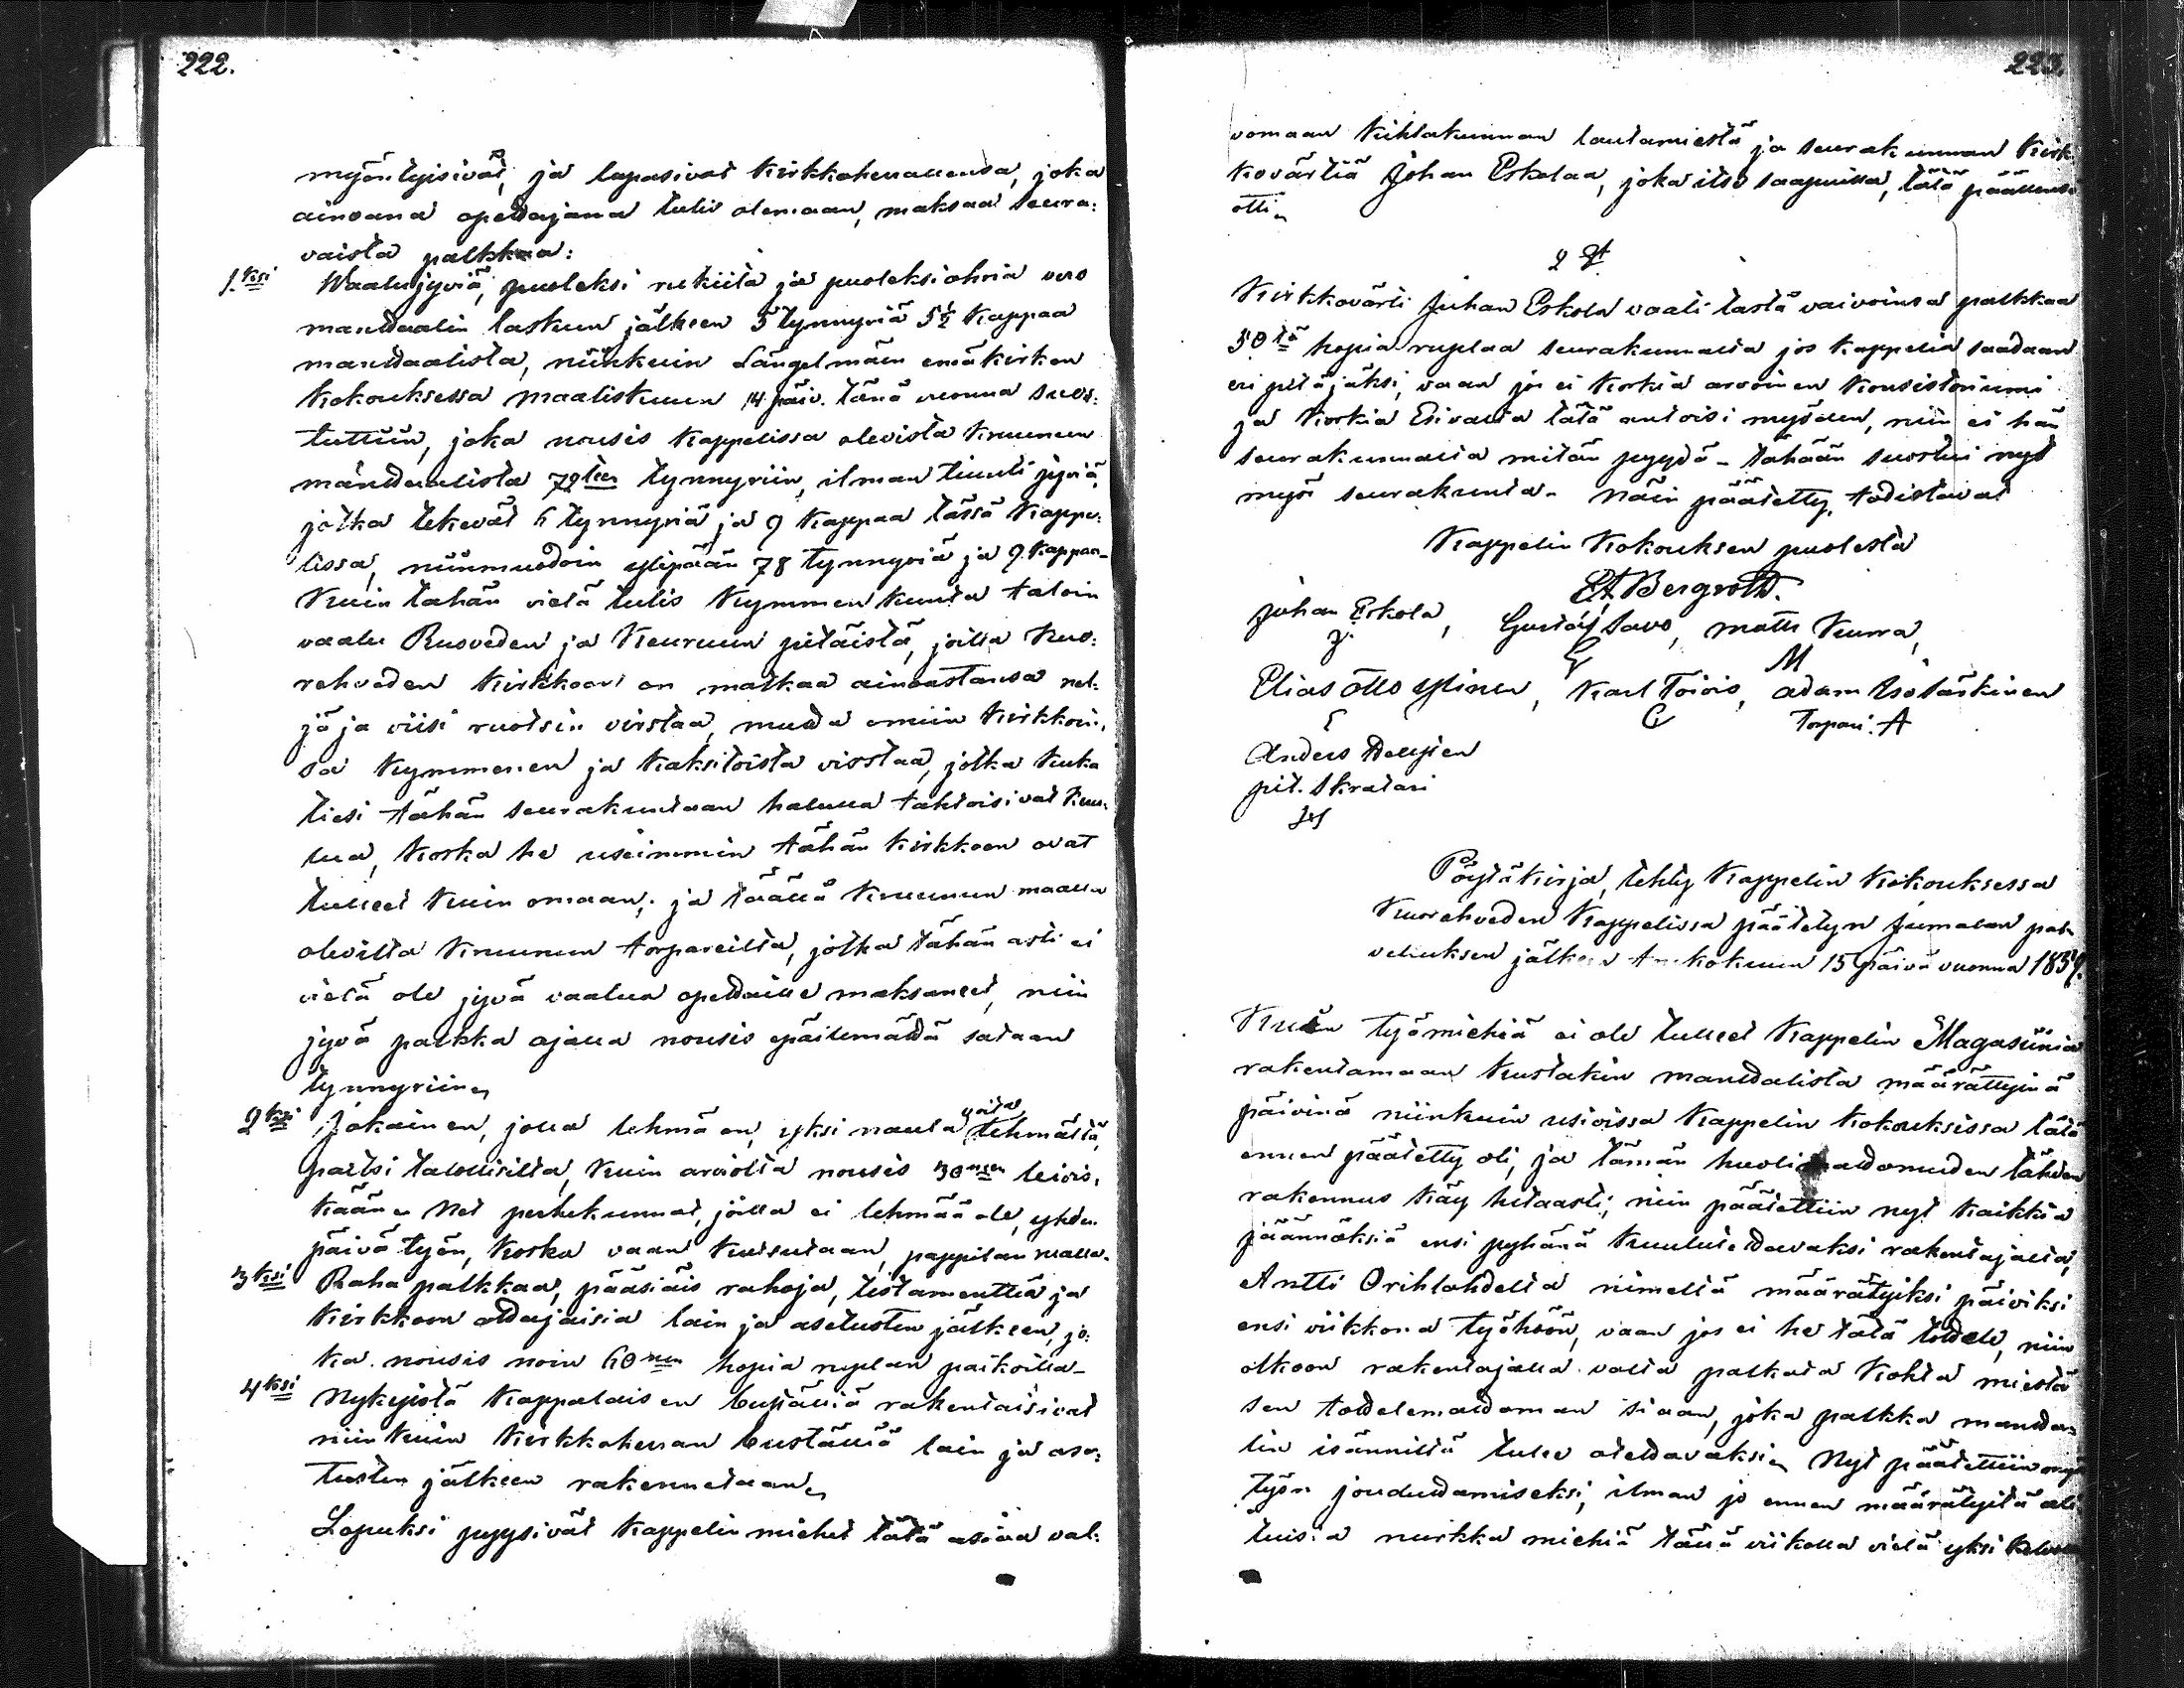 222.
myöntyisivät, ja lupasivat Kirkkoherrallensa, joka
ainoana opettajana tulis olemaan, maksaa seura:
vaista palkkaa:
1.ksi Waalujyviä, puoleksi rukiita ja puoleksi ohria vero
manttaalin laskun jälkeen 5 tynnyriä 5½ kappaa
manttaalista, niinkuin Längelmäen emäkirkon
kokouksessa maaliskuun 14 päiv. tänä vuonna suos:
tuttiin, joka nousis kappelissa olevista kruunun
manttaalista 72teen tynnyriin, ilman tiunti jyviä,
jotka tekevät 6 tynnyriä ja 9 kappaa tässä kappe:
lissa, niinmuodoin ylipään 78 tynnyriä ja 9 kappaa_
Kuin tähän vielä tulis kymmenkunta taloin
vaalu Ruoveden ja Keuruun pitäistä, joilla Kuo:
rehveden kirkkoon on matkaa ainoastansa nel:
jä ja viisi ruotsin virstaa, mutta omiin kirkkoin:
sa kymmenen ja kaksitoista virstaa, jotka kuka
tiesi tähän seurakuntaan halulla tahtoisivat kuu:
lua, koska he useimmin tähän kirkkoon ovat
tulleet kuin omaan; ja täällä kruunun maalla
olevilta kruunun torpareilta, jotka tähän asti ei
vielä ole jyvä vaalua opettaille maksaneet, niin
jyvä palkka ajalla nousis epäilemättä sataan
tynnyriin
2ksi Jokainen, jolla lehmä on, yksi naula voita lehmältä,
paitsi talollisilta, kuin arviolta nousis 30nen leivis:
kään. Net perhekunnat, joilla ei lehmää ole, yhden
päivä työn, koska vaan kutsutaan, pappilan maalla.
3ksi Raha palkkaa, pääsiäis rahoja, testamenttiä ja
kirkkoon ottajaisia lain ja asetusten jälkeen, jo:
ka nousis noin 60nen hopia ruplan paikoilla_
4ksi Nykyistä kappalaisen buställia rakentaisivat
niinkuin kirkkoherran buställia lain ja ase:
tusten jälkeen rakennetaan
Lopuksi pyysivät kappelin miehet tätä asiaa val:
223.
vomaan kihlakunnan lautamiestä ja seurakunnan Kirk:
kovärtiä Johan Eskolaa, joka itse saapuilla, tätä päällensä
otti
2 §
Kirkkovärti Juhan Eskola vaati tästä vaivoinsa palkkaa
50tä hopia ruplaa seurakunnalta jos kappelia saadaan
eri pitäjäksi, vaan jos ei korkia arvoinen konsistoriumi
ja korkia Esivalta tätä antoisi myöden, niin ei hän
seurakunnalta mitän pyydä - tähään suostui nyt
myös seurakunta. Näin päätetty, todistavat
Kappelin Kokouksen puolesta
Bergroth.
Juhan Eskola, Gustaf Savo, Matti Kurra,
J. G M
Elias Otto Ylinen, Karl Toivio, Adam Isotärkinen
E C Torpari. A
Anders Hellsten
pit. Skratari
Pöytäkirja, tehty Kappelin kokouksessa
Kuorehveden Kappelissa päätetyn Jumalan pal:
veluksen jälkeen kokuun 15 päivä vuonna 1859.
Kuin työmiehiä ei ole tulleet Kappelin Magasiinia
rakentamaan kustakin manttalista määrättyinä
päivinä niinkuin usioissa Kappelin kokouksissa tätä
ennen päätetty oli, ja tämän huolimattomuden tähden
rakennus käy hitaasti; niin päätettiin nyt kaikkia
jäännöksiä ensi pyhänä kuulutettavaksi rakentajalta,
Antti Orihlahdelta nimeltä määrätyiksi päiviksi
ensi viikkona työhöön, vaan jos ei he tätä tottele, niin
olkoon rakentajalla valta palkata kohta miestä
sen tottelemattoman siaan, joka palkka mantta:
lin isänniltä tulee otettavaksi. Nyt päätettiin myös
työn jouduttamiseksi, ilman jo ennen määrätyitä
nurkka miehiä tällä viikolla vielä yksi